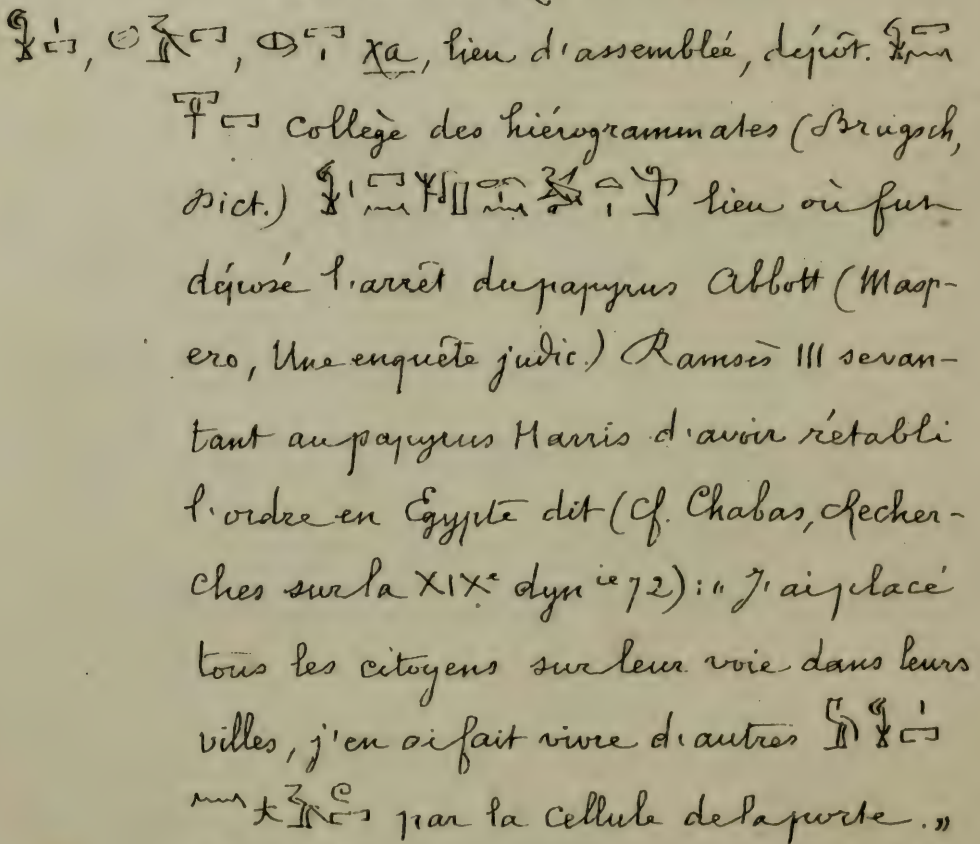 , , xa, lieu d'assemblée, dépôt.
collège des hiérogrammates (Brugsch,
Dict.) lieu où fut
déposé l'arrêt du papyrus Abbott (Masp-
ero, Une enquête judic.) Ramsès III se van-
tant au papyrus Harris d'avoir rétabli
l'ordre en Egypte dit (Cf. Chabas, Recher-
ches sur la XIXe dyn ie 72): "J'ai placé
tous les citoyens sur leur voie dans leurs
villes, j'en ai fait vivre d'autres
par la cellule de la porte."